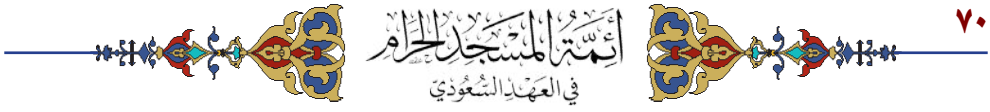 ٧٠
أَئِمَّةُ المَسْجِدِ الحَرَامِ
في العَهْدِ السُّعُوْدِيّ